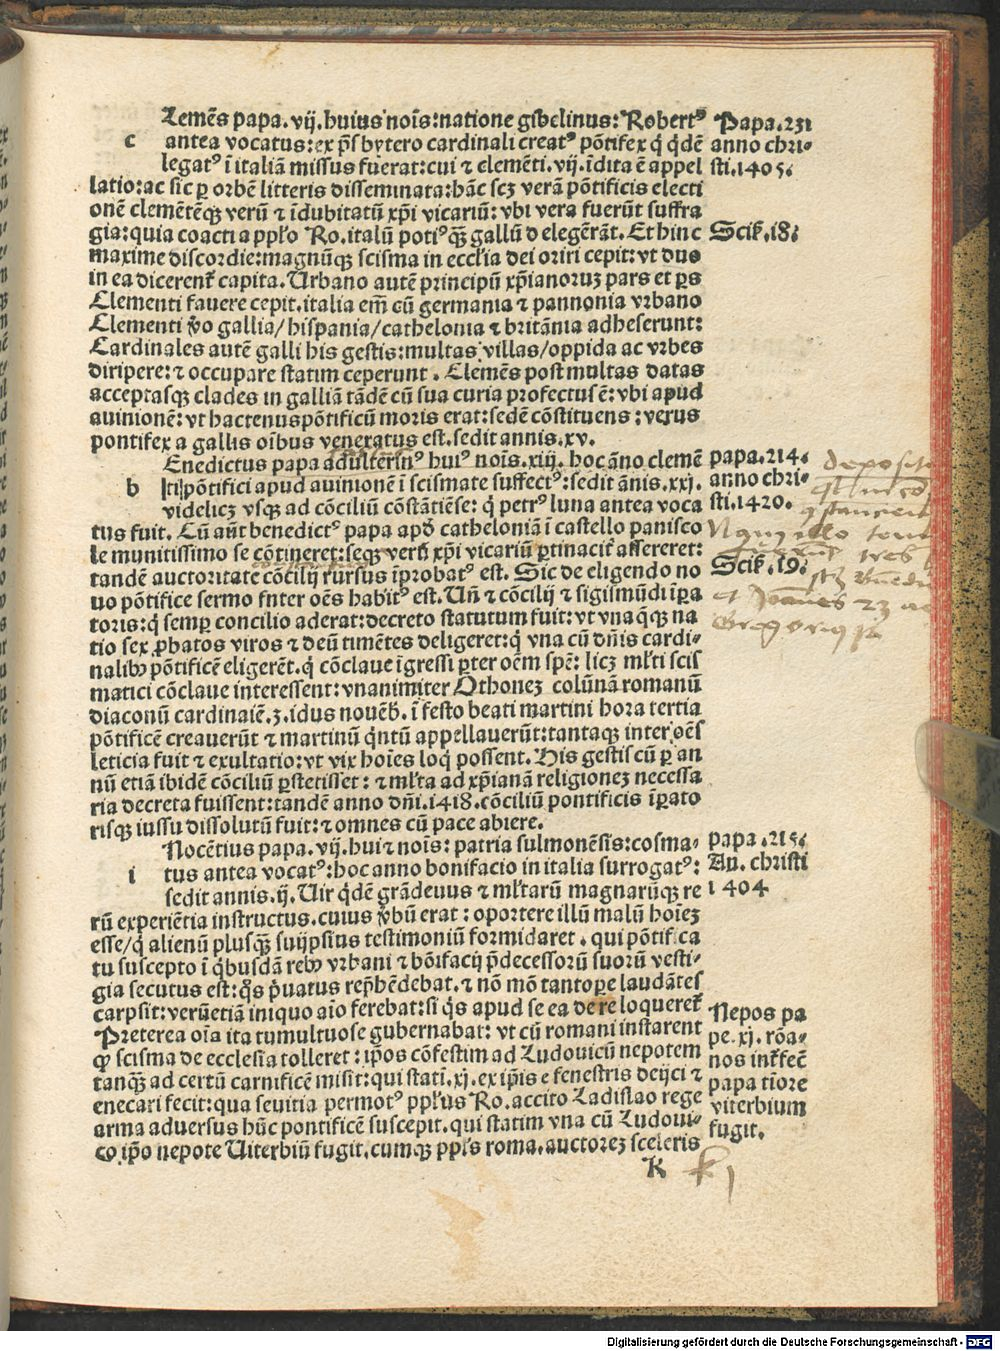 Lemēs papa.vij.huius noīs:natione gēbelinus:Robertꝰ
c antea vocatus:ex p̄sbytero cardinali creatꝰ pōtifex q̇ q̇dē
legatꝰ ī italiā missus fuerat:cui ⁊ clemēti.vij.īdita ē appel
latio:ac sic ꝑ orbē litteris disseminata:hāc scꝫ verā pōtificis electi
onē clemētēqꝫ verū ⁊ īdubitatū xp̄i vicariū:vbi vera fuerūt suffra
gia:quia coacti a ppl'o Ro.italū potiꝰ qꝫ gallū d elegērāt. Et hinc
maxime discordie:magnūqꝫ scisma in eccl'ia dei oriri cepit:vt duo
in ea dicerent̄ capita. Urbano autē principū xp̄ianoruꝫ pars et ꝑs
Clementi fauere cepit.italia em̄ cū germania ⁊ pannonia vrbano
Clementi v̄o gallia/hispania/cathelonia ⁊ britānia adheserunt:
Cardinales autē galli his gestis:multas villas/oppida ac vrbes
diripere:⁊ occupare statim ceperunt. Clemēs post multas datas
acceptasqꝫ clades in galliā tādē cū sua curia profectus ē:vbi apud
auinionē:vt hactenus pōtificū moris erat:sedē cōstituens:verus
pontifex a gallis oībus veneratus est.sedit annis.xv.
Enedictus papa adulterinꝰ huiꝰ noīs.xiij. hoc āno clemē
b |ti|pōtifici apud auinionē ī scismate suffectꝰ:sedit ānis.xxj.
videlicꝫ vsqꝫ ad cōciliū cōstātiēse: q̇ petrꝰ luna antea voca
tus fuit. Cū aūt benedictꝰ papa apd̄ catheloniā ī castello panisco
le munitissimo se cōtineret:seqꝫ verū xp̄i vicariū ꝑtinacit̄ assereret:
tandē auctoritate cōcilij rursus īprobatꝰ est. Sic de eligendo no
uo pōtifice sermo fnter oēs habitꝰ est. Uñ ⁊ cōcilij ⁊ sigismūdi īꝑa
toris:q̇ semꝑ concilio aderat:decreto statutum fuit:vt vnaq̄qꝫ na
tio sex ꝓbatos viros ⁊ deū timētes deligeret:q̇ vna cū dn̄is cardi-
nalibꝰ pōtificē eligerēt.q̇ cōclaue īgressi p̄ter oēm spē: licꝫ ml'ti scis
matici cōclaue interessent: vnanimiter Othoneꝫ colūnā romanū
diaconū cardinalē.3.idus nouēb̄. ī festo beati martini hora tertia
pōtificē creauerūt ⁊ martinū q̇ntū appellauerūt:tantaqꝫ inter oēs
leticia fuit ⁊ exultatio:vt vix hoīes loqͥ possent. His gestis cū ꝑ an
nū etiā ibidē cōciliū ꝑstetisset: ⁊ ml'ta ad xp̄ianā religioneꝫ necessa
ria decreta fuissent:tandē anno dn̄i.1418.cōciliū pontificis īꝑato
risqꝫ iussu dissolutū fuit:⁊ omnes cū pace abiere.
Nocētius papa.vij.huiꝰ noīs: patria sulmonēsis:cosma-
i tus antea vocatꝰ:hoc anno bonifacio in italia surrogatꝰ:
sedit annis.ij. Uir q̇dē grādeuus ⁊ ml'tarū magnarūqꝫ re
rū experiētia instructus.cuius v̄bū erat: oportere illū malū hoīeꝫ
esse/q̇ alienū plusqꝫ suijpsius testimoniū formidaret. qui pōtifica
tu suscepto ī q̇busdā rebꝰ vrbani ⁊ bōifacij p̄decessorū suorū vesti-
gia secutus est:q̄s p̄uatus rep̄hēdebat. ⁊ nō mō tantoꝑe laudātes
carpsit: verūetiā iniquo aīo ferebat: si q̇s apud se ea de re loqueret̄
Preterea oīa ita tumultuose gubernabat: vt cū romani instarent
qꝫ scisma de ecclesia tolleret: ip̄os cōfestim ad Ludouicū nepotem
tanqꝫ ad certū carnificē misit: qui statī.xj.ex ip̄is e fenestris deijci ⁊
enecari fecit: qua seuitia permotꝰ ppl'us Ro. accito Ladislao rege
arma aduersus hūc pontificē suscepit. qui statim vna cū Ludoui-
co ip̄o nepote Uiterbiū fugit. cumqꝫ ppl's roma.auctoreꝫ sceleris
K
Papa.231
anno chri-
sti.1405.
Scis̄.18.
papa.214.
anno chri-
sti.1420.
Scis̄.19.
deposito
constancien
tres
et Joannes 23 ac
Gregorius
papa.215.
An. christi
1404
Nepos pa
pe.xj.rōa-
nos int̄fec̄
papa tīore
viterbium
fugit.